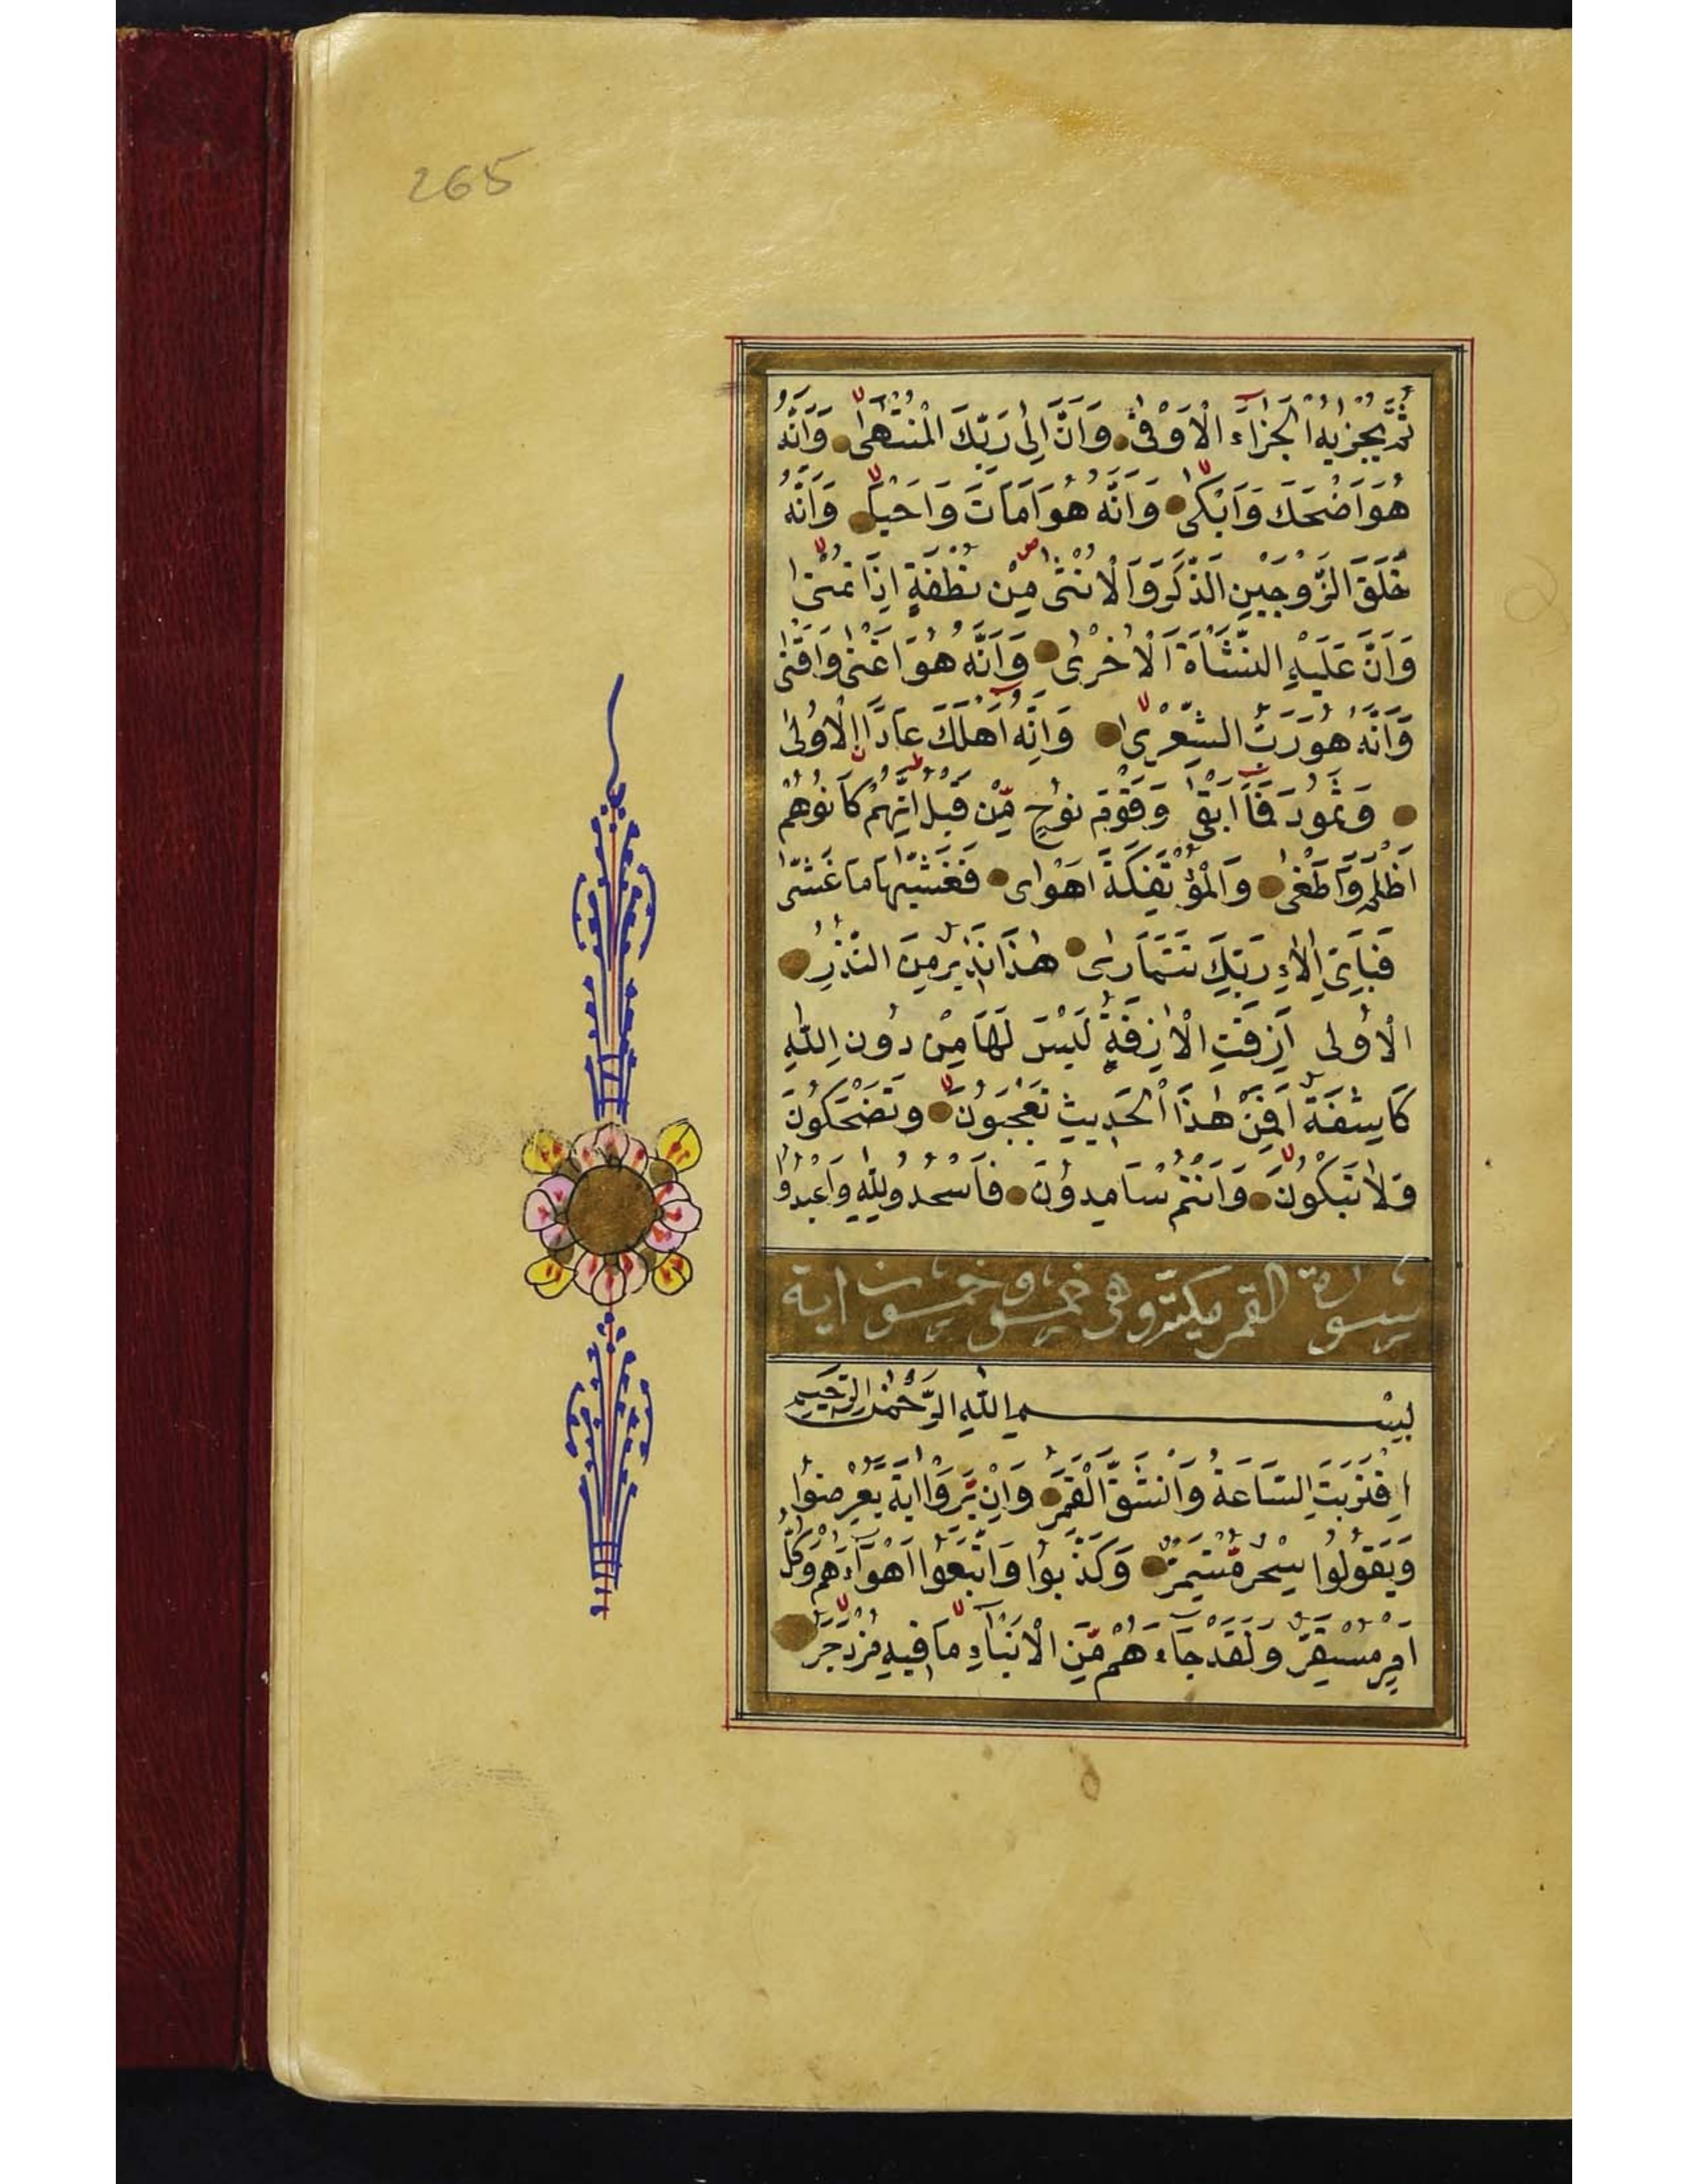 265
ثُمَّ يُجْزٰيهُ الْجَزَآءَ الْاَوْفٰى وَاَنَّ اِلٰى رَبِّكَ الْمُنْتَهٰى وَاَنَّهُ
هُوَ اَضْحَكَ وَاَبْكٰى وَاَنَّهُ هُوَ اَمَاتَ وَاَحْيَا وَاَنَّهُ
خَلَقَ الزَّوْجَيْنِ الذَّكَرَ وَالْاُنْثٰى مِنْ نُطْفَةٍ اِذَا تُمْنٰى
وَاَنَّ عَلَيْهِ النَّشْاَةَ الْاُخْرٰى وَاَنَّهُ هُوَ اَغْنٰى وَاَقْنٰى
وَاَنَّهُ هُوَ رَبُّ الشِّعْرٰى وَاَنَّهُ اَهْلَكَ عَادًا اِلْاُولٰى
وَثَمُودَ فَمَا اَبْقٰى وَقَوْمَ نُوحٍ مِنْ قَبْلُ اِنَّهُمْ كَانُوا هُمْ
اَظْلَمَ وَاَطْغٰى وَالْمُؤْتَفِكَةَ اَهْوٰى فَغَشّٰيهَا مَا غَشّٰى
فَبِاَىِّ اٰلَاءِ رَبِّكَ تَتَمَارٰى هٰذَا نَذٖيرٌ مِنَ النُّذُرِ
الْاُولٰى اَزِفَتِ الْاٰزِفَةُ لَيْسَ لَهَا مِنْ دُونِ اللّٰهِ
كَاشِفَةٌ اَفَمِنْ هٰذَا الْحَدٖيثِ تَعْجَبُونَ وَتَضْحَكُونَ
وَلَا تَبْكُونَ وَاَنْتُمْ سَامِدُونَ فَاسْجُدُو لِلّٰهِ وَاعْبُدُوا
سورة القمر مكية وهى خمس وخمسون اية
بِسْمِ اللّٰهِ الرَّحْمٰنِ الرَّحٖيمِ
اِقْتَرَبَتِ السَّاعَةُ وَانْشَقَّ الْقَمَرُ وَاِنْ يَرَوْا اٰيَةً يُعْرِضُوا
وَيَقُولُوا سِحْرٌ مُسْتَمِرٌّ وَكَذَّبُوا وَاتَّبَعُوا اَهْوَآءَهُمْ وَكُلُّ
اَمْرٍ مُسْتَقِرٌّ وَلَقَدْ جَآءَهُمْ مِنَ الْاَنْبَآءِ مَا فٖيهِ مُزْدَجَرٌ